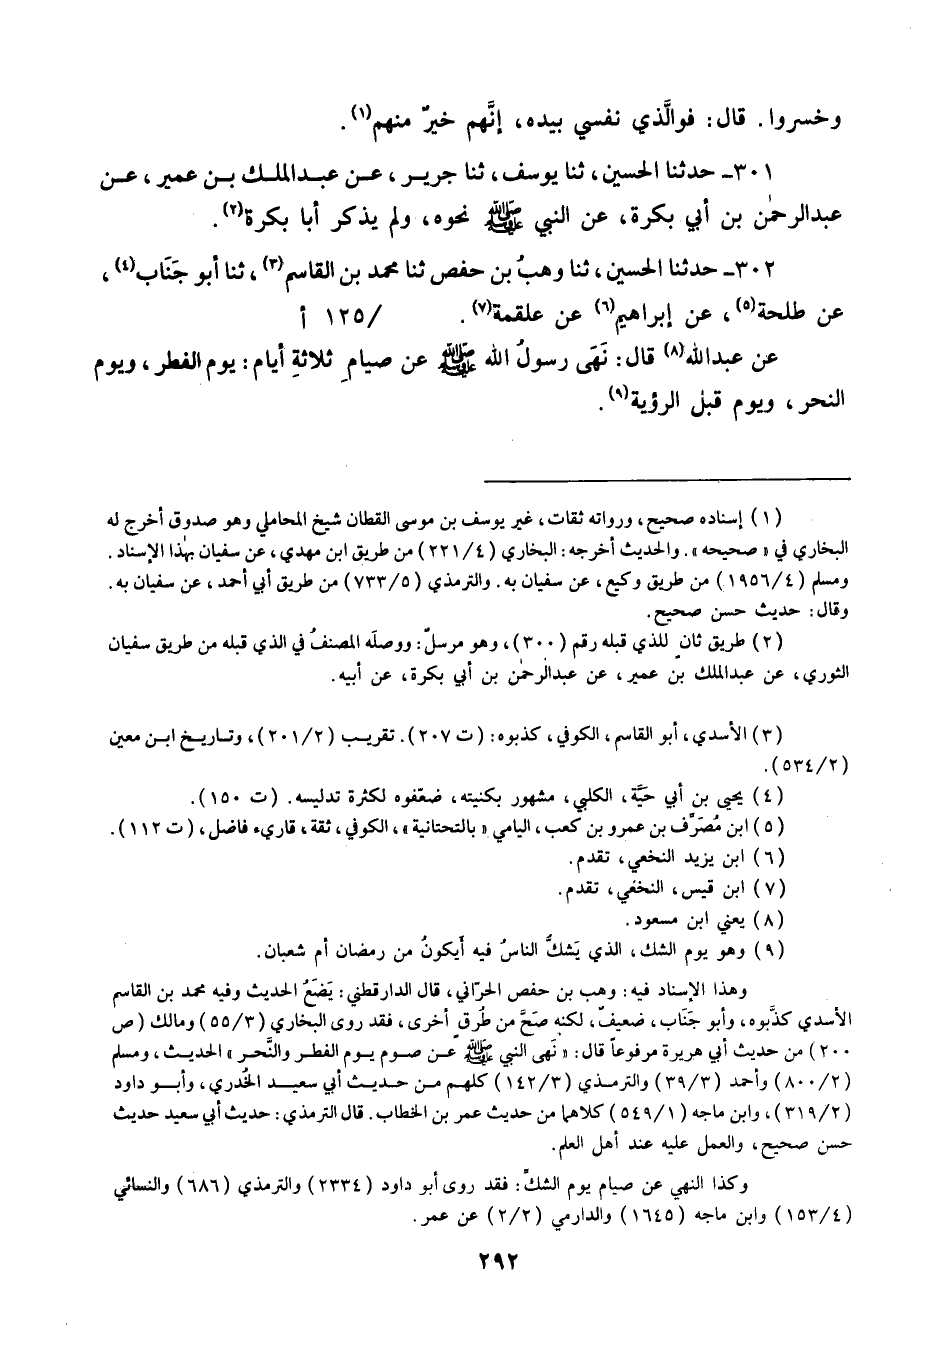 وخسروا. قال: فوالَّذي نفسي بيده، إنَّهم خيرٌ منهم(١).
٣٠١ـ حدثنا الحسين، ثنا يوسف، ثنا جرير، عن عبدالملك بن عمير، عن
عبدالرحمٰن بن أبي بكرة، عن النبي ﷺ نحوه، ولم يذكر أبا بكرة(٢).
٣٠٢ـ حدثنا الحسين، ثنا وهبُ بن حفص ثنا محمد بن القاسم(٣)، ثنا أبو جَنَاب(٤)،
عن طلحة(٥)، عن إبراهيم(٦) عن علقمة(٧). /١٢٥ أ
عن عبدالله(٨) قال: نَهَى رسولُ الله ﷺ عن صيامِ ثلاثةِ أيام: يوم الفطر، ويوم
النحر، ويوم قبل الرؤية(٩).
(١) إسناده صحيح، ورواته ثقات، غير يوسف بن موسى القطان شيخ المحاملي وهو صدوق أخرج له
البخاري في «صحيحه». والحديث أخرجه: البخاري (٢٢١/٤) من طريق ابن مهدي، عن سفيان بهٰذا الإسناد.
ومسلم (١٩٥٦/٤) من طريق وكيع، عن سفيان به. والترمذي (٧٣٣/٥) من طريق أبي أحمد، عن سفيان به.
وقال: حديث حسن صحيح.
(٢) طريق ثانٍ للذي قبله رقم (٣٠٠)، وهو مرسلٌ: ووصلَه المصنفُ في الذي قبله من طريق سفيان
الثوري، عن عبدالملك بن عمير، عن عبدالرحمٰن بن أبي بكرة، عن أبيه.
(٣) الأسدي، أبو القاسم، الكوفي، كذبوه: (ت ٢٠٧). تقريب (٢٠١/٢)، وتاريخ ابن معين
(٥٣٤/٢).
(٤) يحيى بن أبي حيَّة، الكلبي، مشهور بكنيته، ضعّفوه لكثرة تدليسه. (ت ١٥٠).
(٥) ابن مُصَرِّف بن عمرو بن كعب، اليامي «بالتحتانية»، الكوفي، ثقة، قاريء فاضل، (ت ١١٢).
(٦) ابن يزيد النخعي، تقدم.
(٧) ابن قيس، النخغي، تقدم.
(٨) يعني ابن مسعود.
(٩) وهو يوم الشك، الذي يَشكُّ الناسُ فيه أَيكونُ من رمضان أم شعبان.
وهذا الإسناد فيه: وهب بن حفص الحرّاني، قال الدارقطني: يَضَعُ الحديث وفيه محمد بن القاسم
الأسدي كذَّبوه، وأبو جَنَاب، ضعيفٌ، لكنه صَحَّ من طُرقٍ أخرى، فقد روى البخاري (٥٥/٣) ومالك (ص
٢٠٠) من حديث أبي هريرة مرفوعاً قال: «نَهى النبي ﷺ عن صوم يوم الفطر والنَّحر» الحديث، ومسلم
(٨٠٠/٢) وأحمد (٣٩/٣) والترمذي (١٤٢/٣) كلهم من حديث أبي سعيد الخُدري، وأبو داود
(٣١٩/٢)، وابن ماجه (٥٤٩/١) كلاهما من حديث عمر بن الخطاب. قال الترمذي: حديث أبي سعيد حديث
حسن صحيح، والعمل عليه عند أهل العلم.
وكذا النهي عن صيام يوم الشكِّ: فقد روى أبو داود (٢٣٣٤) والترمذي (٦٨٦) والنسائي
(١٥٣/٤) وابن ماجه (١٦٤٥) والدارمي (٢/٢) عن عمر.
٢٩٢